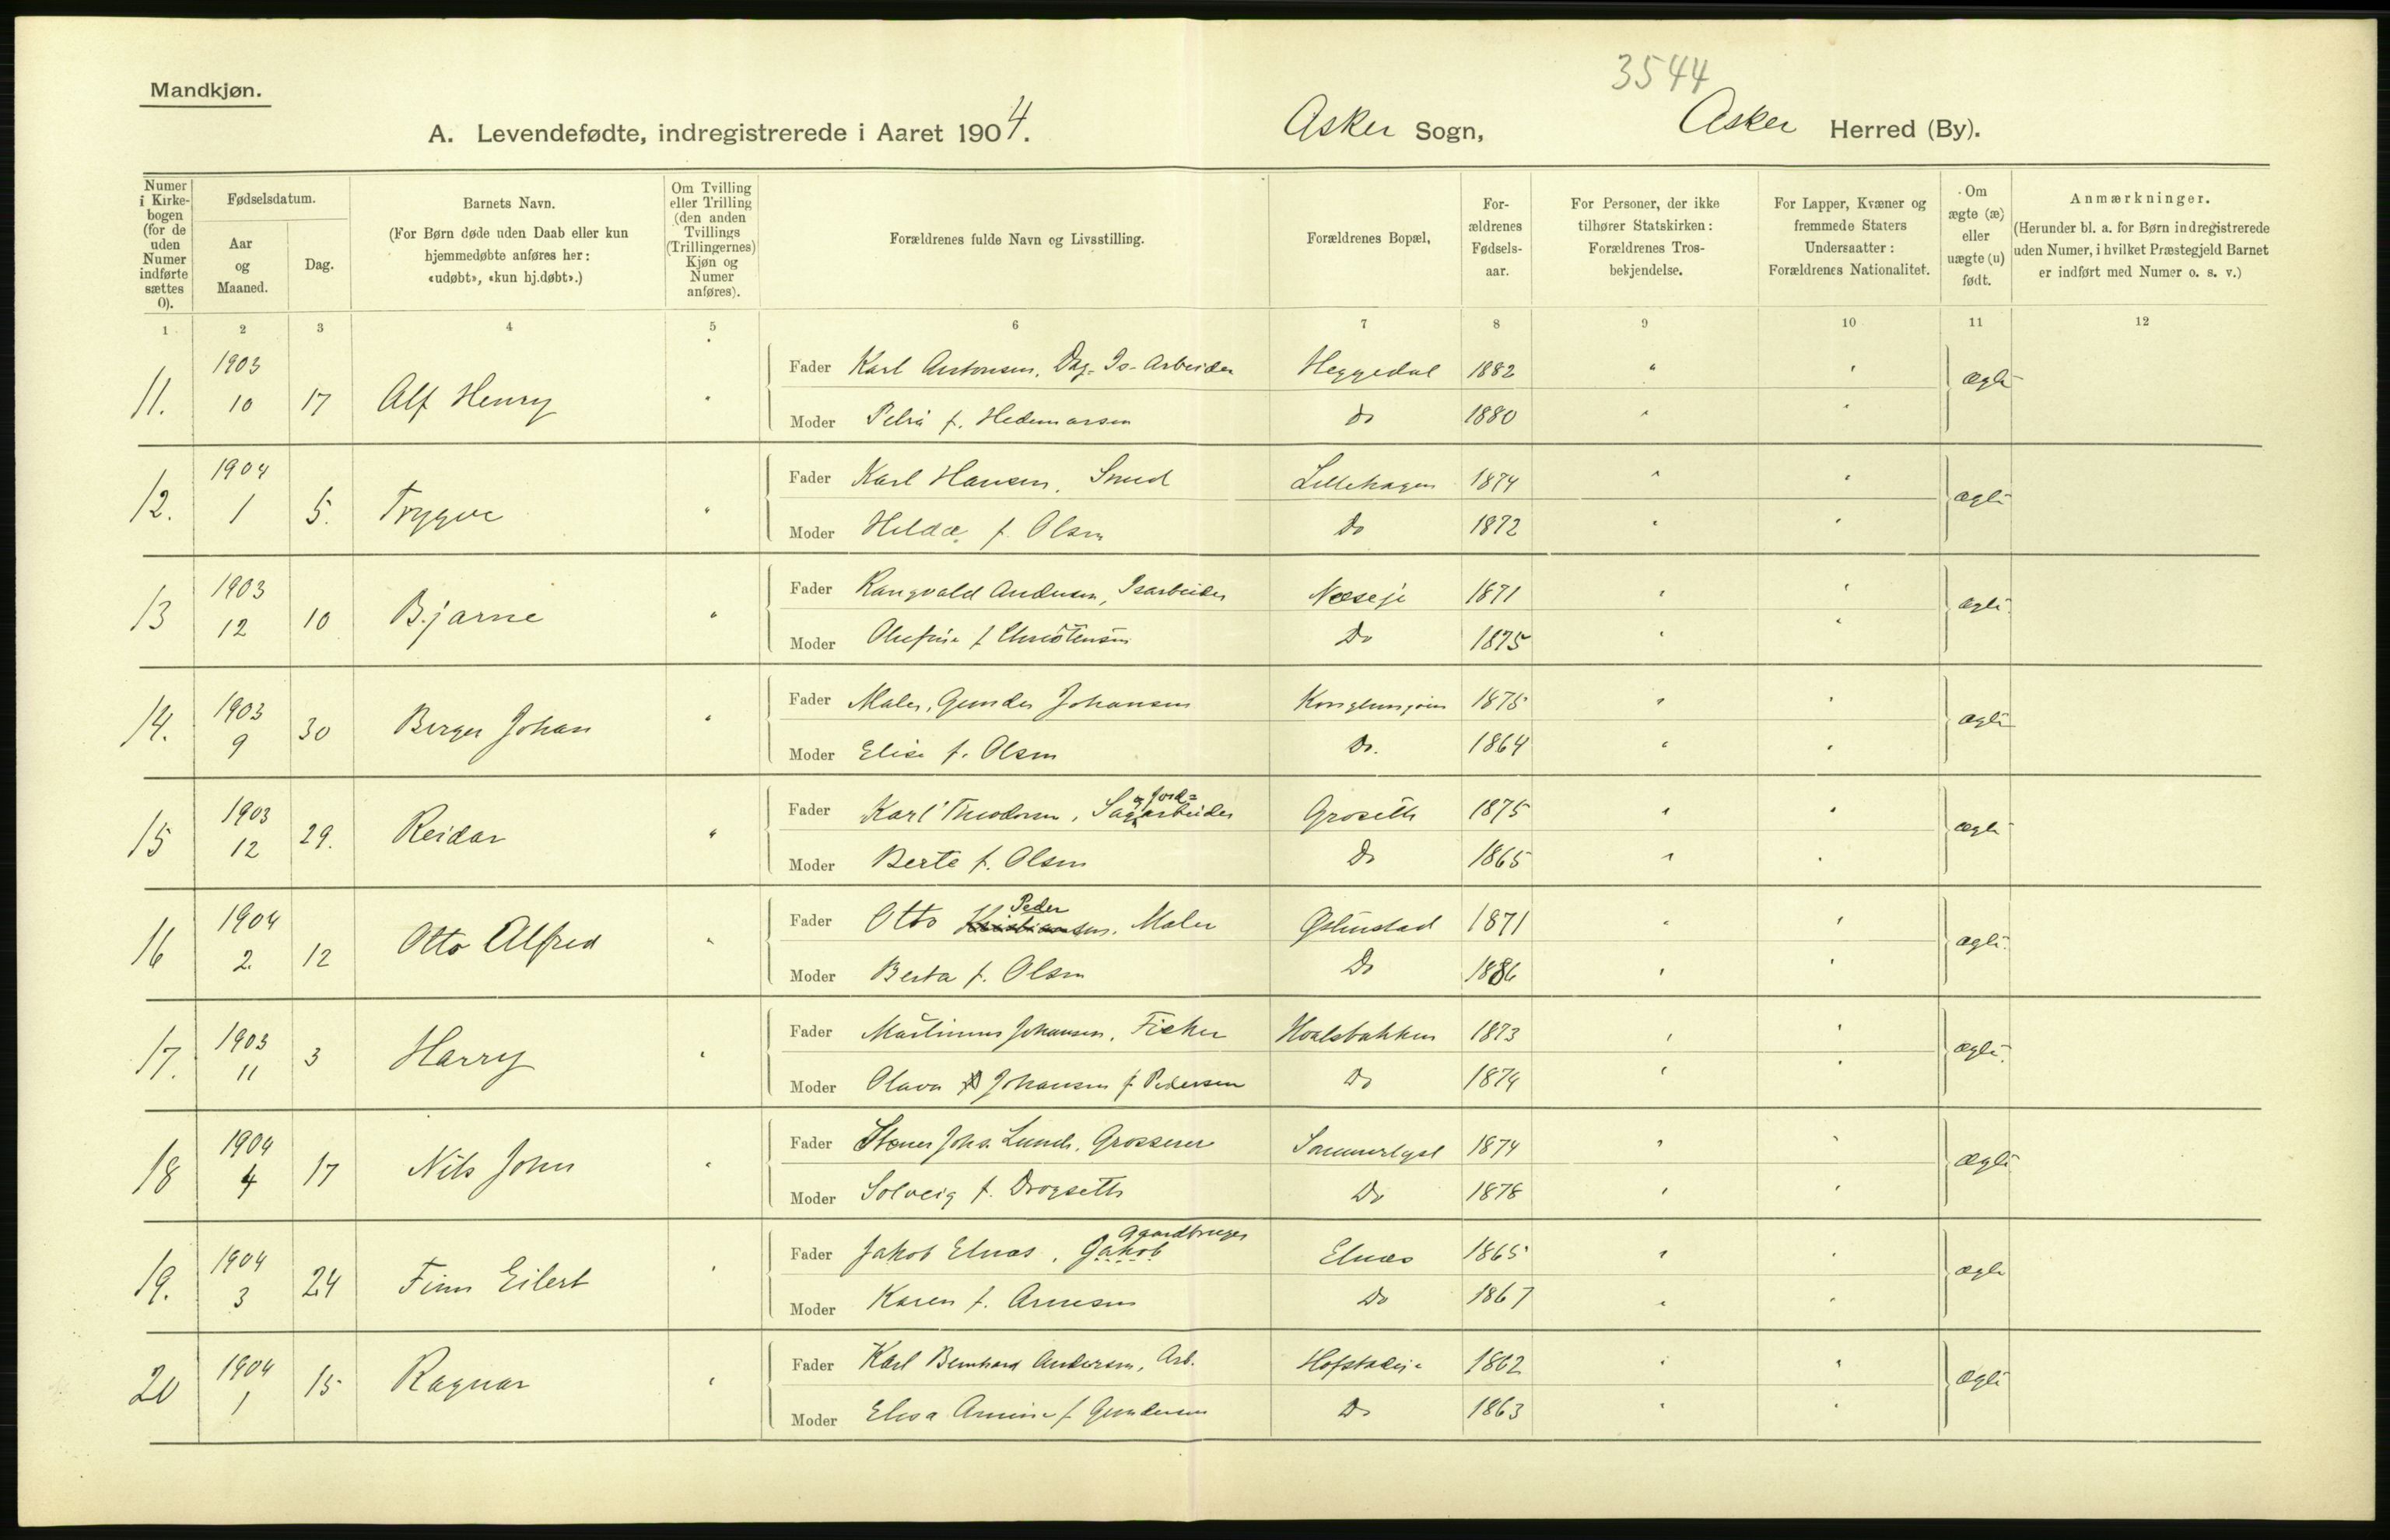 3544
Mandkjøn.
A. Levendefødte, indregistrerede i Aaret 1904. Asker Sogn, Asker Herred (By).
Numer i Kirkebogen (for de uden Numer indførte sættes 0).
Fødselsdatum.
Aar og Maaned.
Dag.
Barnets Navn.
(For Børn døde uden Daab eller kun hjemmedøbte anføres her: «udøbt», «kun hj.døbt».)
Om Tvilling eller Trilling (den anden Tvillings (Trillingernes) Kjøn og Numer anføres).
Forældrenes fulde Navn og Livsstilling.
Forældrenes Bopæl,
Forældrenes Fødselsaar.
For Personer, der ikke tilhører Statskirken: Forældrenes Trosbekjendelse.
For Lapper, Kvæner og fremmede Staters Undersaatter: Forældrenes Nationalitet.
Om ægte (æ) eller uægte (u) født.
Anmærkninger.
(Herunder bl. a. for Børn indregistrerede uden Numer, i hvilket Præstegjeld Barnet er indført med Numer o. s. v.)
1 2 3 4 5 6 7 8 9 10 11 12
11. 1903 10 17 Alf Henry " Fader Karl Antonsen, Dag- Is- Arbeider Heggedal 1882 " " ægte
Moder Petra f. Hedemarsen Do 1880 " "
12. 1904 1 5. Trygve " Fader Karl Hansen, Smed Lillehagen 1874 " " ægte
Moder Hilda f. Olsen Do 1872 " "
13 1903 12 10 Bjarne " Fader Rangvald Andersen, Isarbeider Næseje 1871 " " ægte
Moder Olufine f. Christensen Do 1875 " "
14. 1903 9 30 Berger Johan " Fader Maler, Gunder Johansen 1875 " " ægte
Moder Elise f. Olsen Do. 1864 " "
15 1903 12 29. Reidar " Fader Karl Theodorsen, Sag & Jord= arbeider Groseth 1875 " " ægte
Moder Berte f. Olsen Do 1865 " "
16 1904 2. 12 Otto Alfred " Fader Otto Kristiansen Peder, Maler 1871 " " ægte
Moder Berta f. Olsen Do 1886 " "
17. 1903 11 3 Harry " Fader Martinius Johansen, Fisker Hvalsbakken 1873 " " ægte
Moder Olava Johansen f. Pedersen Do 1874 " "
18 1904 4 17 Nils John " Fader Stener Johs. Lunch, Grosserer Sommerlyst 1874 " " ægte
Moder Solveig f. Drogseth Do 1878 " "
19. 1904 3 24 Finn Eilert " Fader Jakob Elnæs, Jakob Gaardbruger Elnæs 1865 " " ægte
Moder Karen f. Arnesen Do 1867 " "
20 1904 1 15 Ragnar " Fader Karl Bernhard Andersen, Arb. Hofstadeje 1862 " " ægte
Moder Elisa Annine f. Gundersen Do 1863 " "